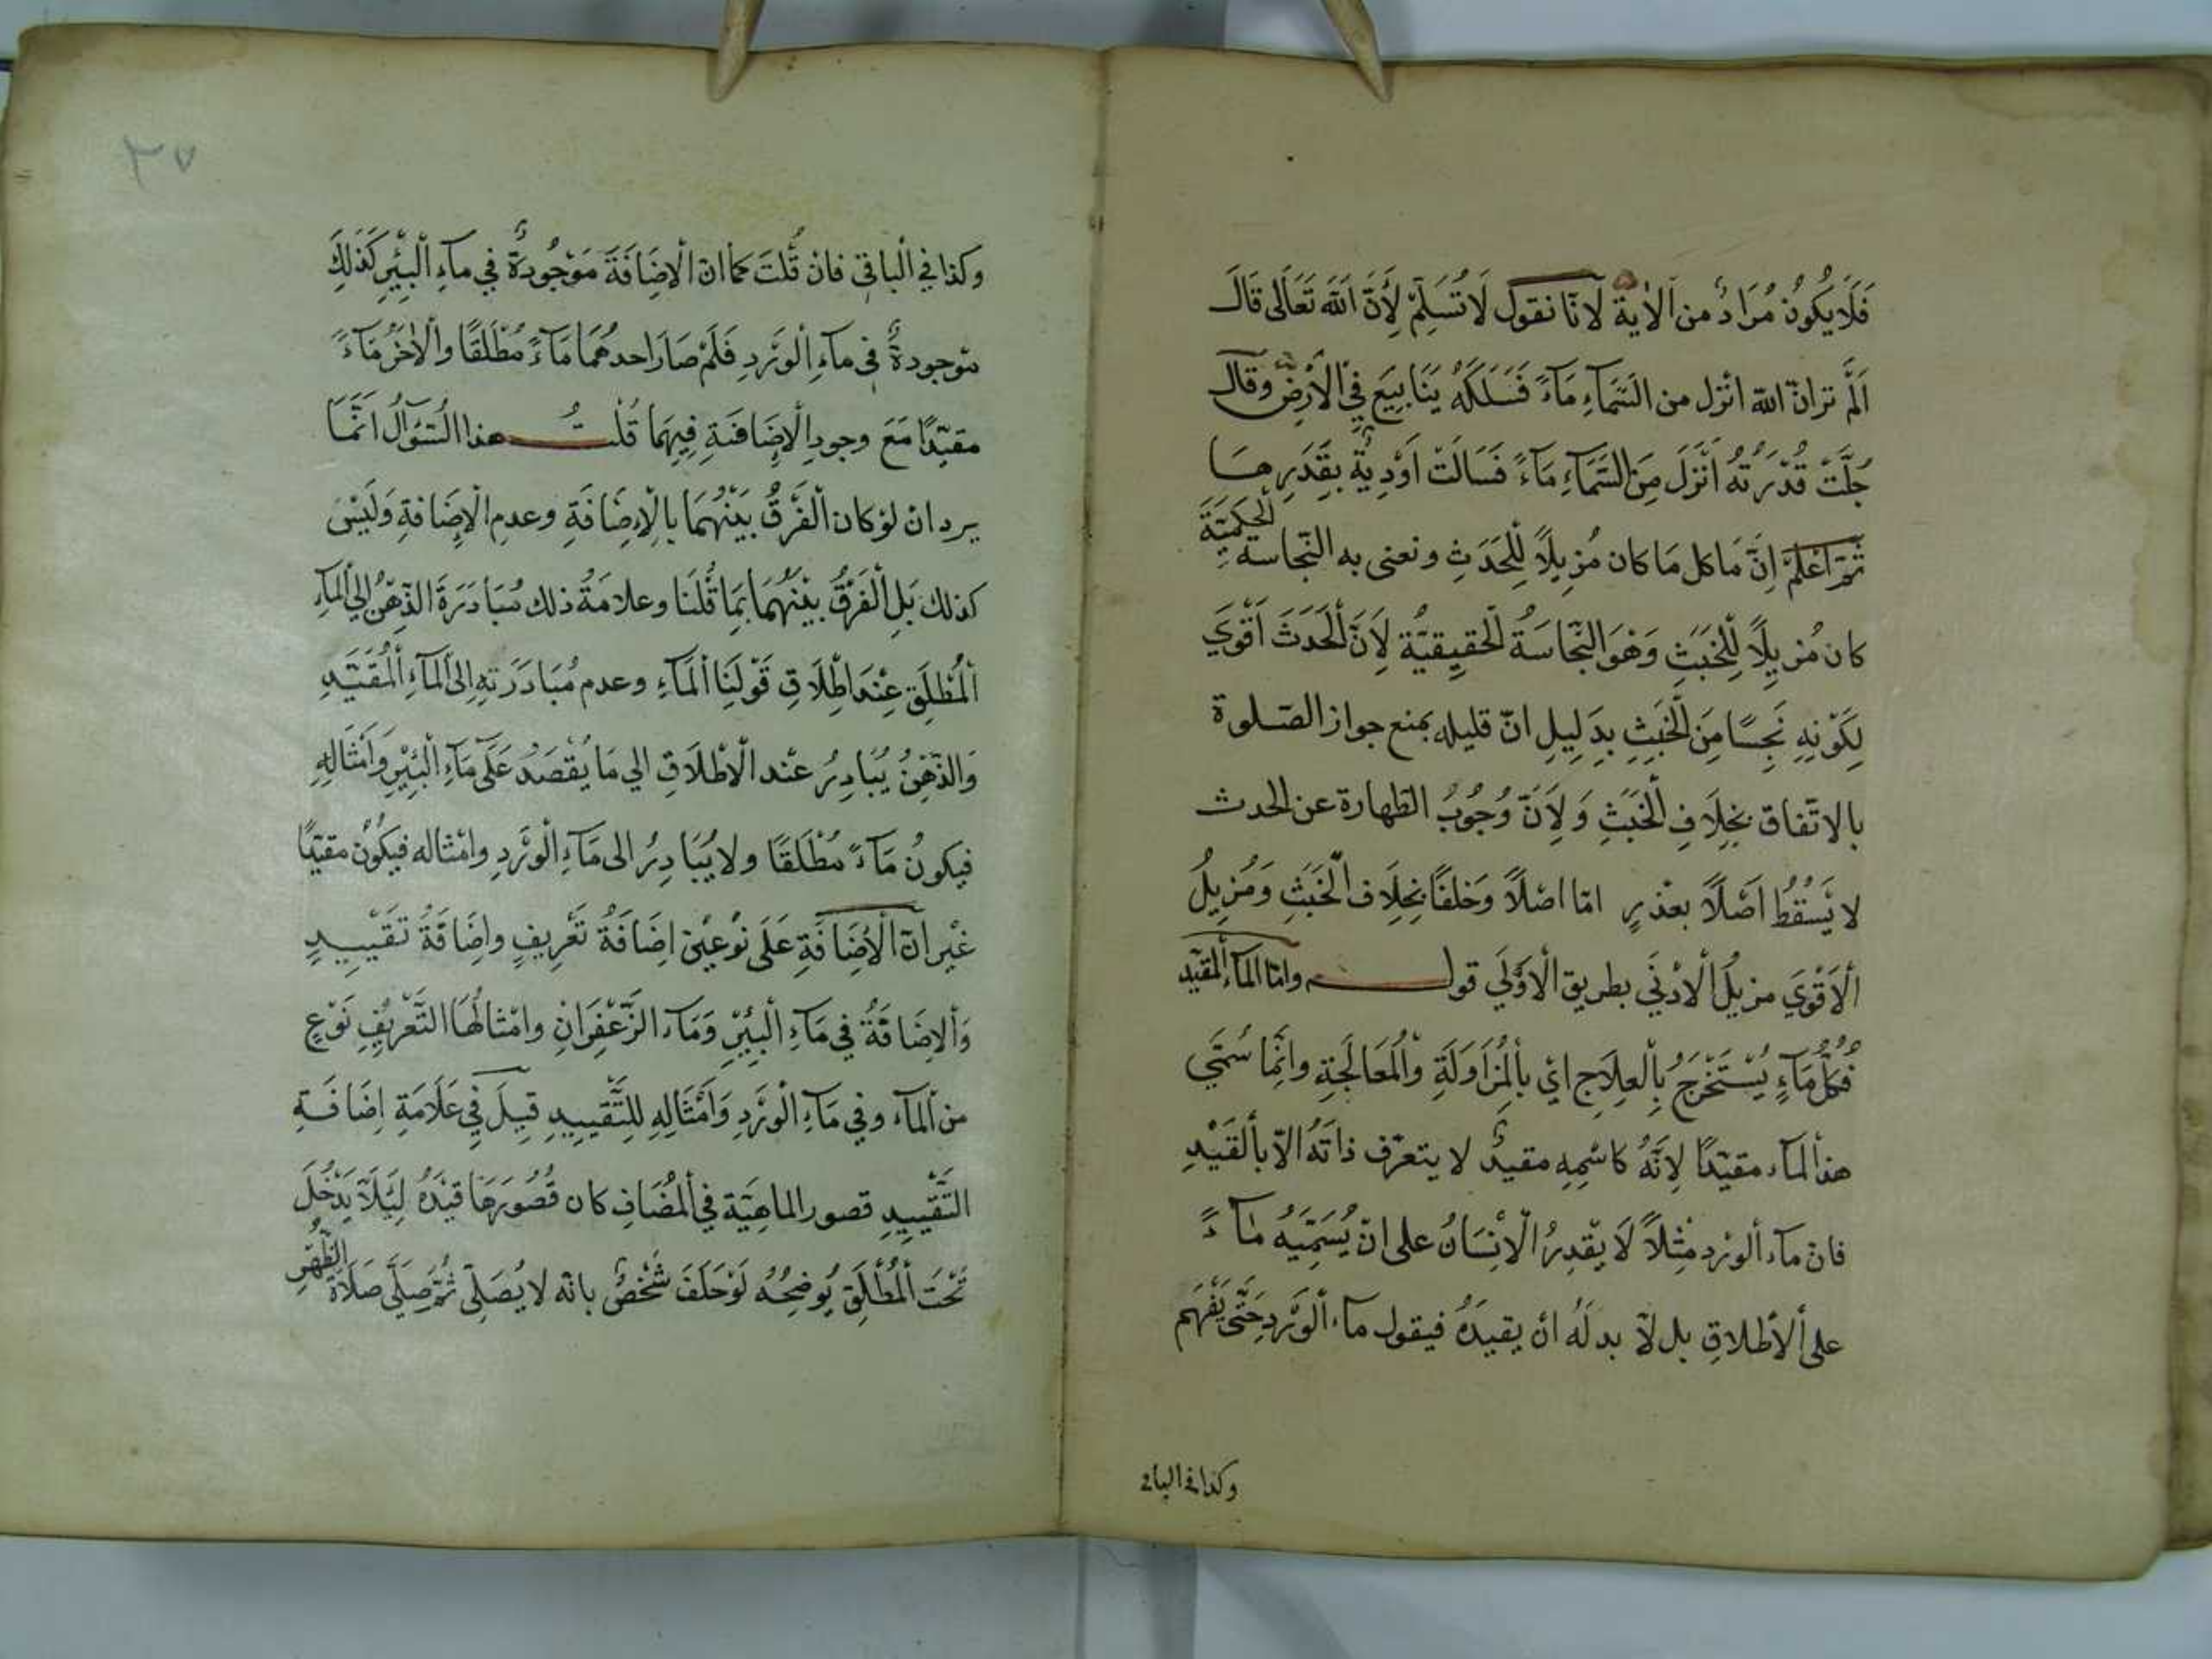 فَلَا يَكُونُ مُرَادٌ من الاٰية لانّا نقول لَا نُسَلِّمُ لِأَنَّ اللّٰهَ تَعَالٰى قَالَ
اَلَمْ تر انّ اللّٰه انزل من السَّمَاءِ مَآءً فَسَلَكَهُ يَنَابِيعَ فِي الْاَرْضِ وقال
جَلَّتْ قُدْرَتُهُ اَنْزَلَ مِنَ السَّمَآءِ مَآءً فَسَالَتْ اَوْدِيَةٌ بِقَدَرِهَا
ثُمَّ اعْلَمْ اِنَّ مَا كل مَا كان مُزِيلًا لِلْحَدَثِ ونعنى به النّجاسة الحُكمِيَّةَ
كان مُزِيلًا لِلْخَبَثِ وَهْوَ النَّجَاسَةُ الْحقيقيَّة لِاَنَّ الْحَدَثَ اَقْوَي
لِكَوْنِهِ نَجِسًا مِنَ الْخَبَثِ بِدَلِيلِ انّ قليله يمنع جواز الصّلوة
بالاتّفاق بخِلَافِ الْخَبَثِ وَلِاَنَّ وُجُوبُ الطهارة عن الحدث
لا يَسْقُطُ اَصْلًا بعُذرٍ امّا اصْلًا وَخلفًا بخِلَاف الْخَبَثِ وَمُزِيلُ
الْاَقْوَي مزيلُ الْادْنَي بطريق الْاَوْلَي قوله وامّا المآء المقيّد
فَكُلُّ مَآءٍ يُسْتَخْرَجُ بِالْعِلَاجِ اىْ بِالْمُزَاوَلَةِ وَالْمُعَالَجَةِ وانَّمَا سُمِّيَ
هذا المآء مقيّدًا لِاَنَّهُ كاسْمِهِ مقيدٌ لا يتعرّف ذاتَهُ الّا بالْقَيْدِ
فان مآء الورد مَثلًا لَا يَقْدِرُ الْاِنْسَانُ على انْ يُسَمِّيَهُ مَآءً
على الْاطلاقِ بل لَا بد لَهُ انْ يقيدَهُ فيقول مآء الْوَرْد حَتَّى يَفْهَم
وكذا فى الباقى
٣٧
وكذا في الْباقِي فان قُلتَ كمَا ان الْاِضَافَةَ مَوْجُودةٌ في مآءِ الْبِئْرِ كَذَلِكَ
موجودةٌ فى مآءِ الْوَرْدِ فَلَمْ صَارَ احدهُمَا مَآءً مُطْلَقًا والْاٰخَرُ مَآءً
مقيّدًا مَعَ وجودِ الْاِضَافَةِ فِيهِمَا قُلْتُ هذا السُّؤَالُ اِنَّمَا
يرد ان لوْ كان الْفَرْقُ بَيْنَهُمَا بالْاِضَافَةِ وعدمِ الْاِضَافةِ وَلَيْسَ
كذلك بَلِ الْفَرْقُ بَيْنَهُمَا بِمَا قُلْنَا وعلامَةُ ذلك مُبَادَرَةَ الذِّهْنِ اِلى الْمآءِ
الْمُطْلَقِ عِنْدَ اِطْلَاقِ قَوْلِنَا الْمَآءِ وعدم مُبَادَرَتهِ اِلى الْمَآءِ الْمُقَيَّدِ
وَالذِّهْنُ يُبَادِرُ عِنْد الْاطْلَاقِ الي مَا يُقْصَدُ عَلَى مَآءِ الْبِئْرِ وَاَمْثَالِهِ
فيكونُ مَآءً مُطْلَقًا ولا يُبَادِرُ الى مَآءِ الْوَرْدِ وامْثاله فيكُونُ مقيّدًا
غَيْرَ انّ الْاِضَافَةِ عَلَى نَوْعَيْنِ اضَافَةُ تَعْرِيفٍ واِضَافَةُ تَقْيِيدٍ
وَالاِضَافَةُ في مَآءِ الْبِئْرِ وَمَآء الزَّعْفَرَانِ وامْثَالُهَا التَّعْرِيفِ نَوْعٍ
من الْمآء وفي مَآءِ الْوَرْدِ وَاَمْثَالِهِ لِلتَّقْيِيدِ قِيلَ في عَلَامَةِ اِضَافَةِ
التَّقْيِيدِ قصور الماهيّة في الْمُضَافِ كان قُصُورَهَا قيَّدَهُ لِئَلَّا يَدْخُلَ
تَحْتَ الْمُطْلَقِ يُوضِحُهُ لَوْ حَلَفَ شَخْصٌ بانّه لا يُصَلّي ثُمَّ صَلَّى صَلَاةَ الظُّهْرِ